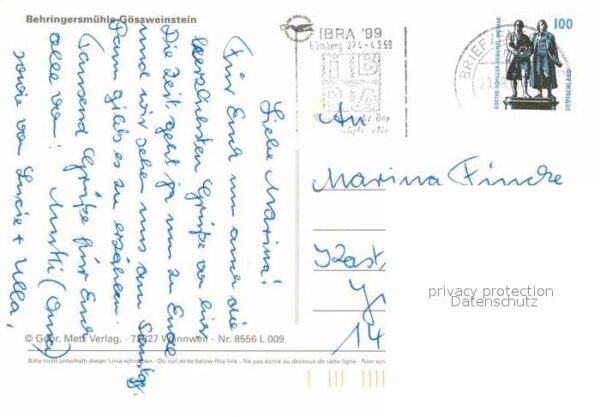 Behringersmühle-Gössweinstein
IBRA '99
Nürnberg 27.4.-4.5.99
IB
RA
BRIEFZ
100
GOETHE-SCHILLER-DENKMAL WEIMAR
DEUTSCHLAND
Liebe Marina!
Für Euch nun auch die
herzlichsten Grüße von hier
Die Zeit geht ja nun zu Ende
und wir sehen uns am Samstag.
Dann gibt's zu erzählen.
Tausend Grüße für Euch
alle von: Mutti (Oma)
sowie von Lucie + Ulla.
An
Marina Fincke
Kast
14
privacy protection
Datenschutz
© Gebr. Metz Verlag. - 72827 Wannweil - Nr. 8556 L 009
Bitte nicht unterhalb dieser Linie schreiben - Do not write below this line - Ne pas écrire au dessous de cette ligne - Non scri